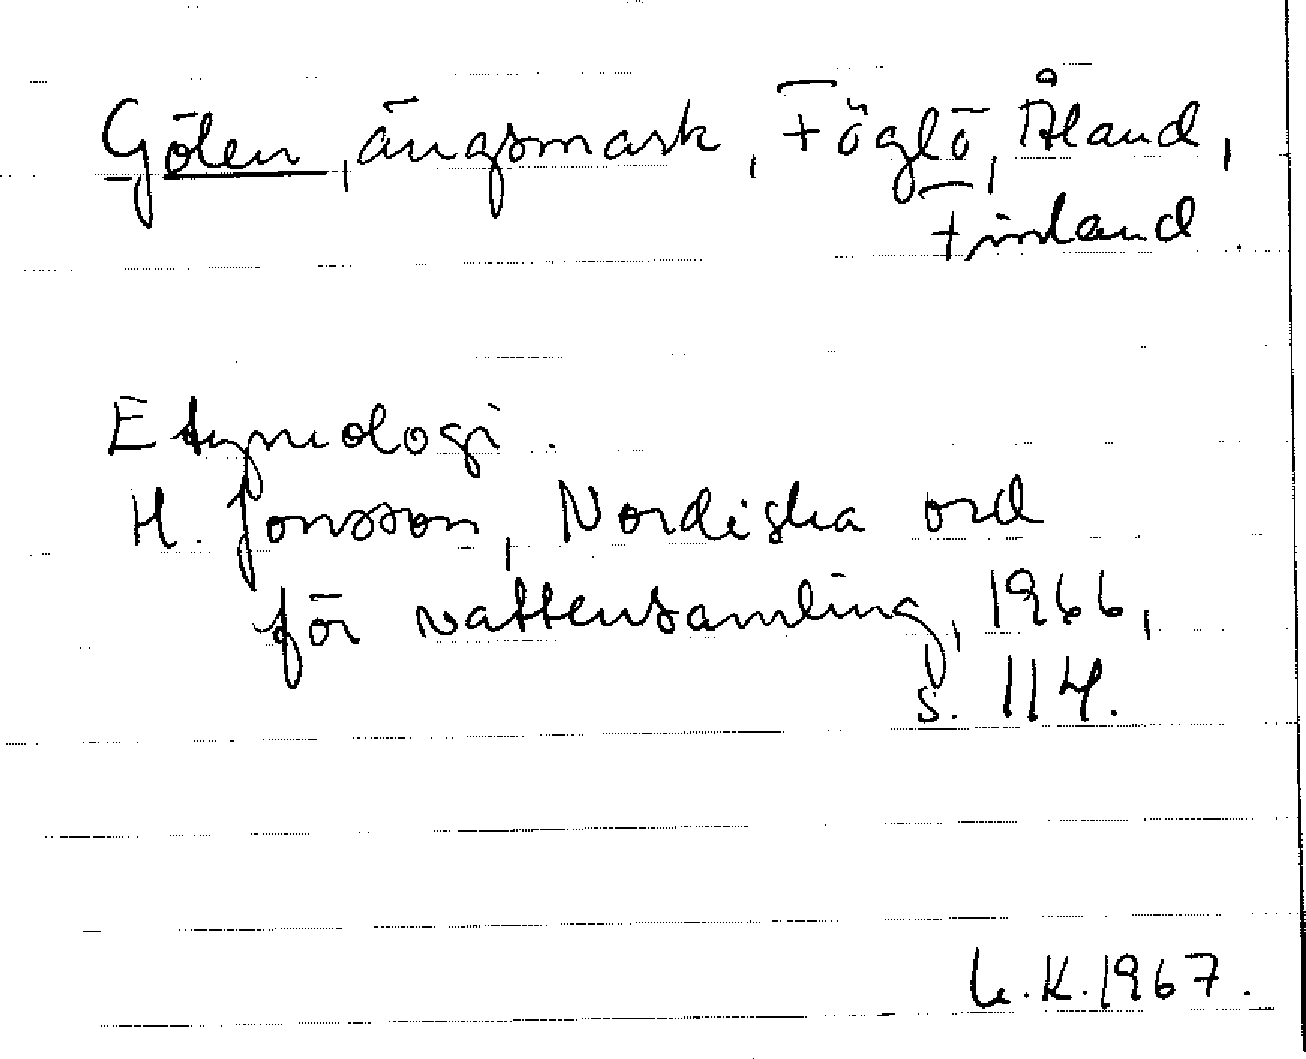 Gölen, ängsmark, Föglö, Åland,
Finland.
Etymologi.
H. Jonsson, Nordiska ord
för vattensamling, 1966,
s. 114.
L.K. 1967.